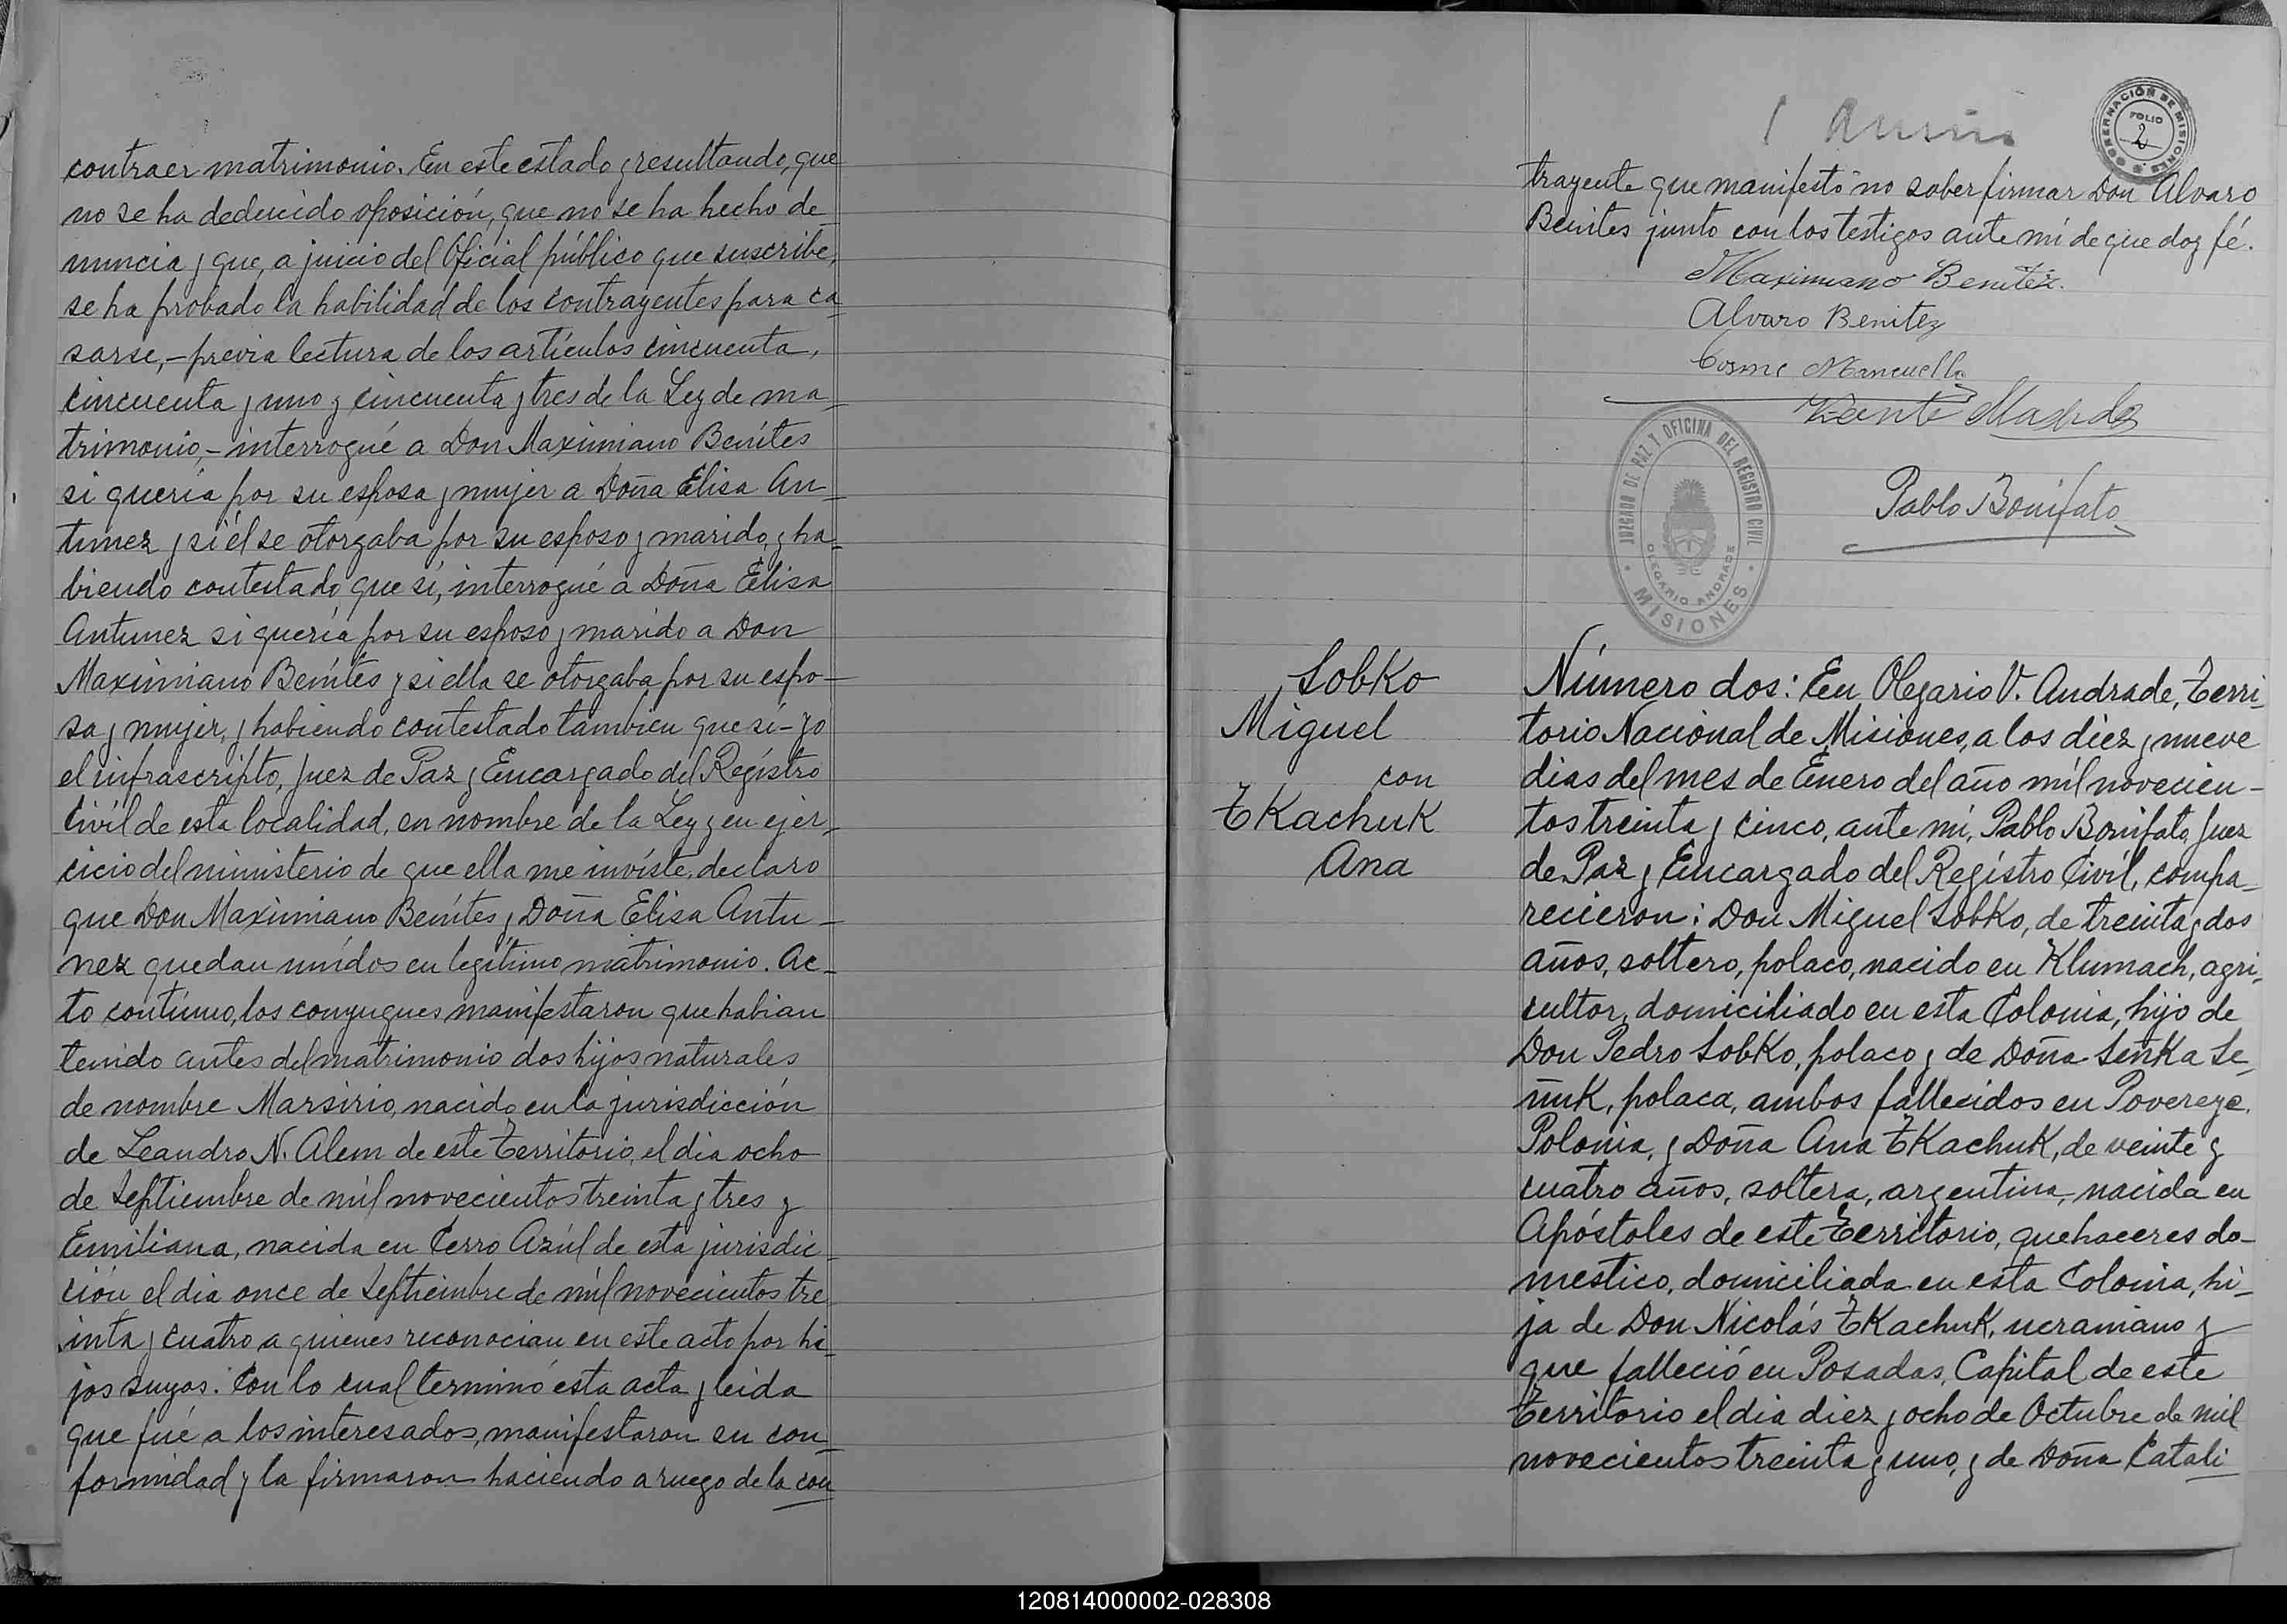 contraer matrimonio. En este estado y resultando, que
no se ha deducido oposición, que no se ha hecho de_
nuncia y que, a juicio del Oficial público que suscribe,
se ha probado la habilidad de los contrayentes para ca_
sarse, - previa lectura de los artículos cincuenta,
cincuenta y uno y cincuenta y tres de la Ley de ma_
trimonio, - interrogué a Don Maximiano Benítes
si quería por su esposa y mujer a Doña Elisa An_
tunez y si él se otorgaba por su esposo y marido, y ha_
biendo contestado que sí, interrogué a Doña Elisa
Antunez si quería por su esposo y marido a Don
Maximiano Benítes y si ella se otorgaba por su espo-
sa y mujer, y habiendo contestado tambien que sí - yo
el infrascripto, Juez de Paz y Encargado del Regístro
Civíl de esta localidad, en nombre de la Ley y en ejer_
cicio del ministerio de que ella me invíste, declaro
que Don Maximiano Benítes y Doña Elisa Antu_
nez quedan unídos en legítimo matrimonio. Ac_
to contínuo, los conyugues manifestaron que habian
tenido antes del matrimonio dos hijos naturales
de nombre Marsirio, nacido en la jurisdicción
de Leandro N. Alem de este Territorio, el dia ocho
de Septiembre de míl novecientos treinta y tres y
Emiliana, nacida en Cerro Azúl de esta jurisdic_
ción el dia once de Septiembre de míl novecientos tre
inta y cuatro a quienes reconocian en este acto por hi_
jos suyos. Con lo cual terminó esta acta y leida
que fué a los interesados, manifestaron su con_
formidad y la firmaron haciendo a ruego de la con
GOBERNACIÓN DE MISIONES
FOLIO
2
trayente que manifestó no saber firmar Don Alvaro
Benites junto con los testigos ante mí de que doy fé.
Maximiano Benitez.
Alvaro Benitez
Cosme Mancuello
Pablo Bonifato
JUZGADO DE PAZ Y OFICINA DEL REGISTRO CIVIL
OLEGARIO ANDRADE
MISIONES
Sobko
Miguel
con
Tkachuk
Ana
Número dos: En Olegario V. Andrade, Terri_
torio Nacional de Misiones, a los diez y nueve
dias del mes de Enero del año míl novecien-
tos treinta y cinco, ante mí, Pablo Bonifato, Juez
de Paz y Encargado del Regístro Civíl, compa_
recieron: Don Miguel Sobko, de treinta y dos
años, soltero, polaco, nacido en Klumach, agri_
cultor, domiciliado en esta Colonia, hijo de
Don Pedro Sobko, polaco y de Doña Señka Se_
ñuk, polaca, ambos fallecidos en Povereye,
Polonia, y Doña Ana Tkachuk, de veinte y
cuatro años, soltera, argentina, nacida en
Apóstoles de este Territorio, quehaceres do-
mestico, domiciliada en esta Colonia, hi_
ja de Don Nicolás Tkachuk, ucraniano y
que falleció en Posadas, Capital de este
Territorio el dia diez y ocho de Octubre de mil
novecientos treinta y uno, y de Doña Catali
120814000002-028308